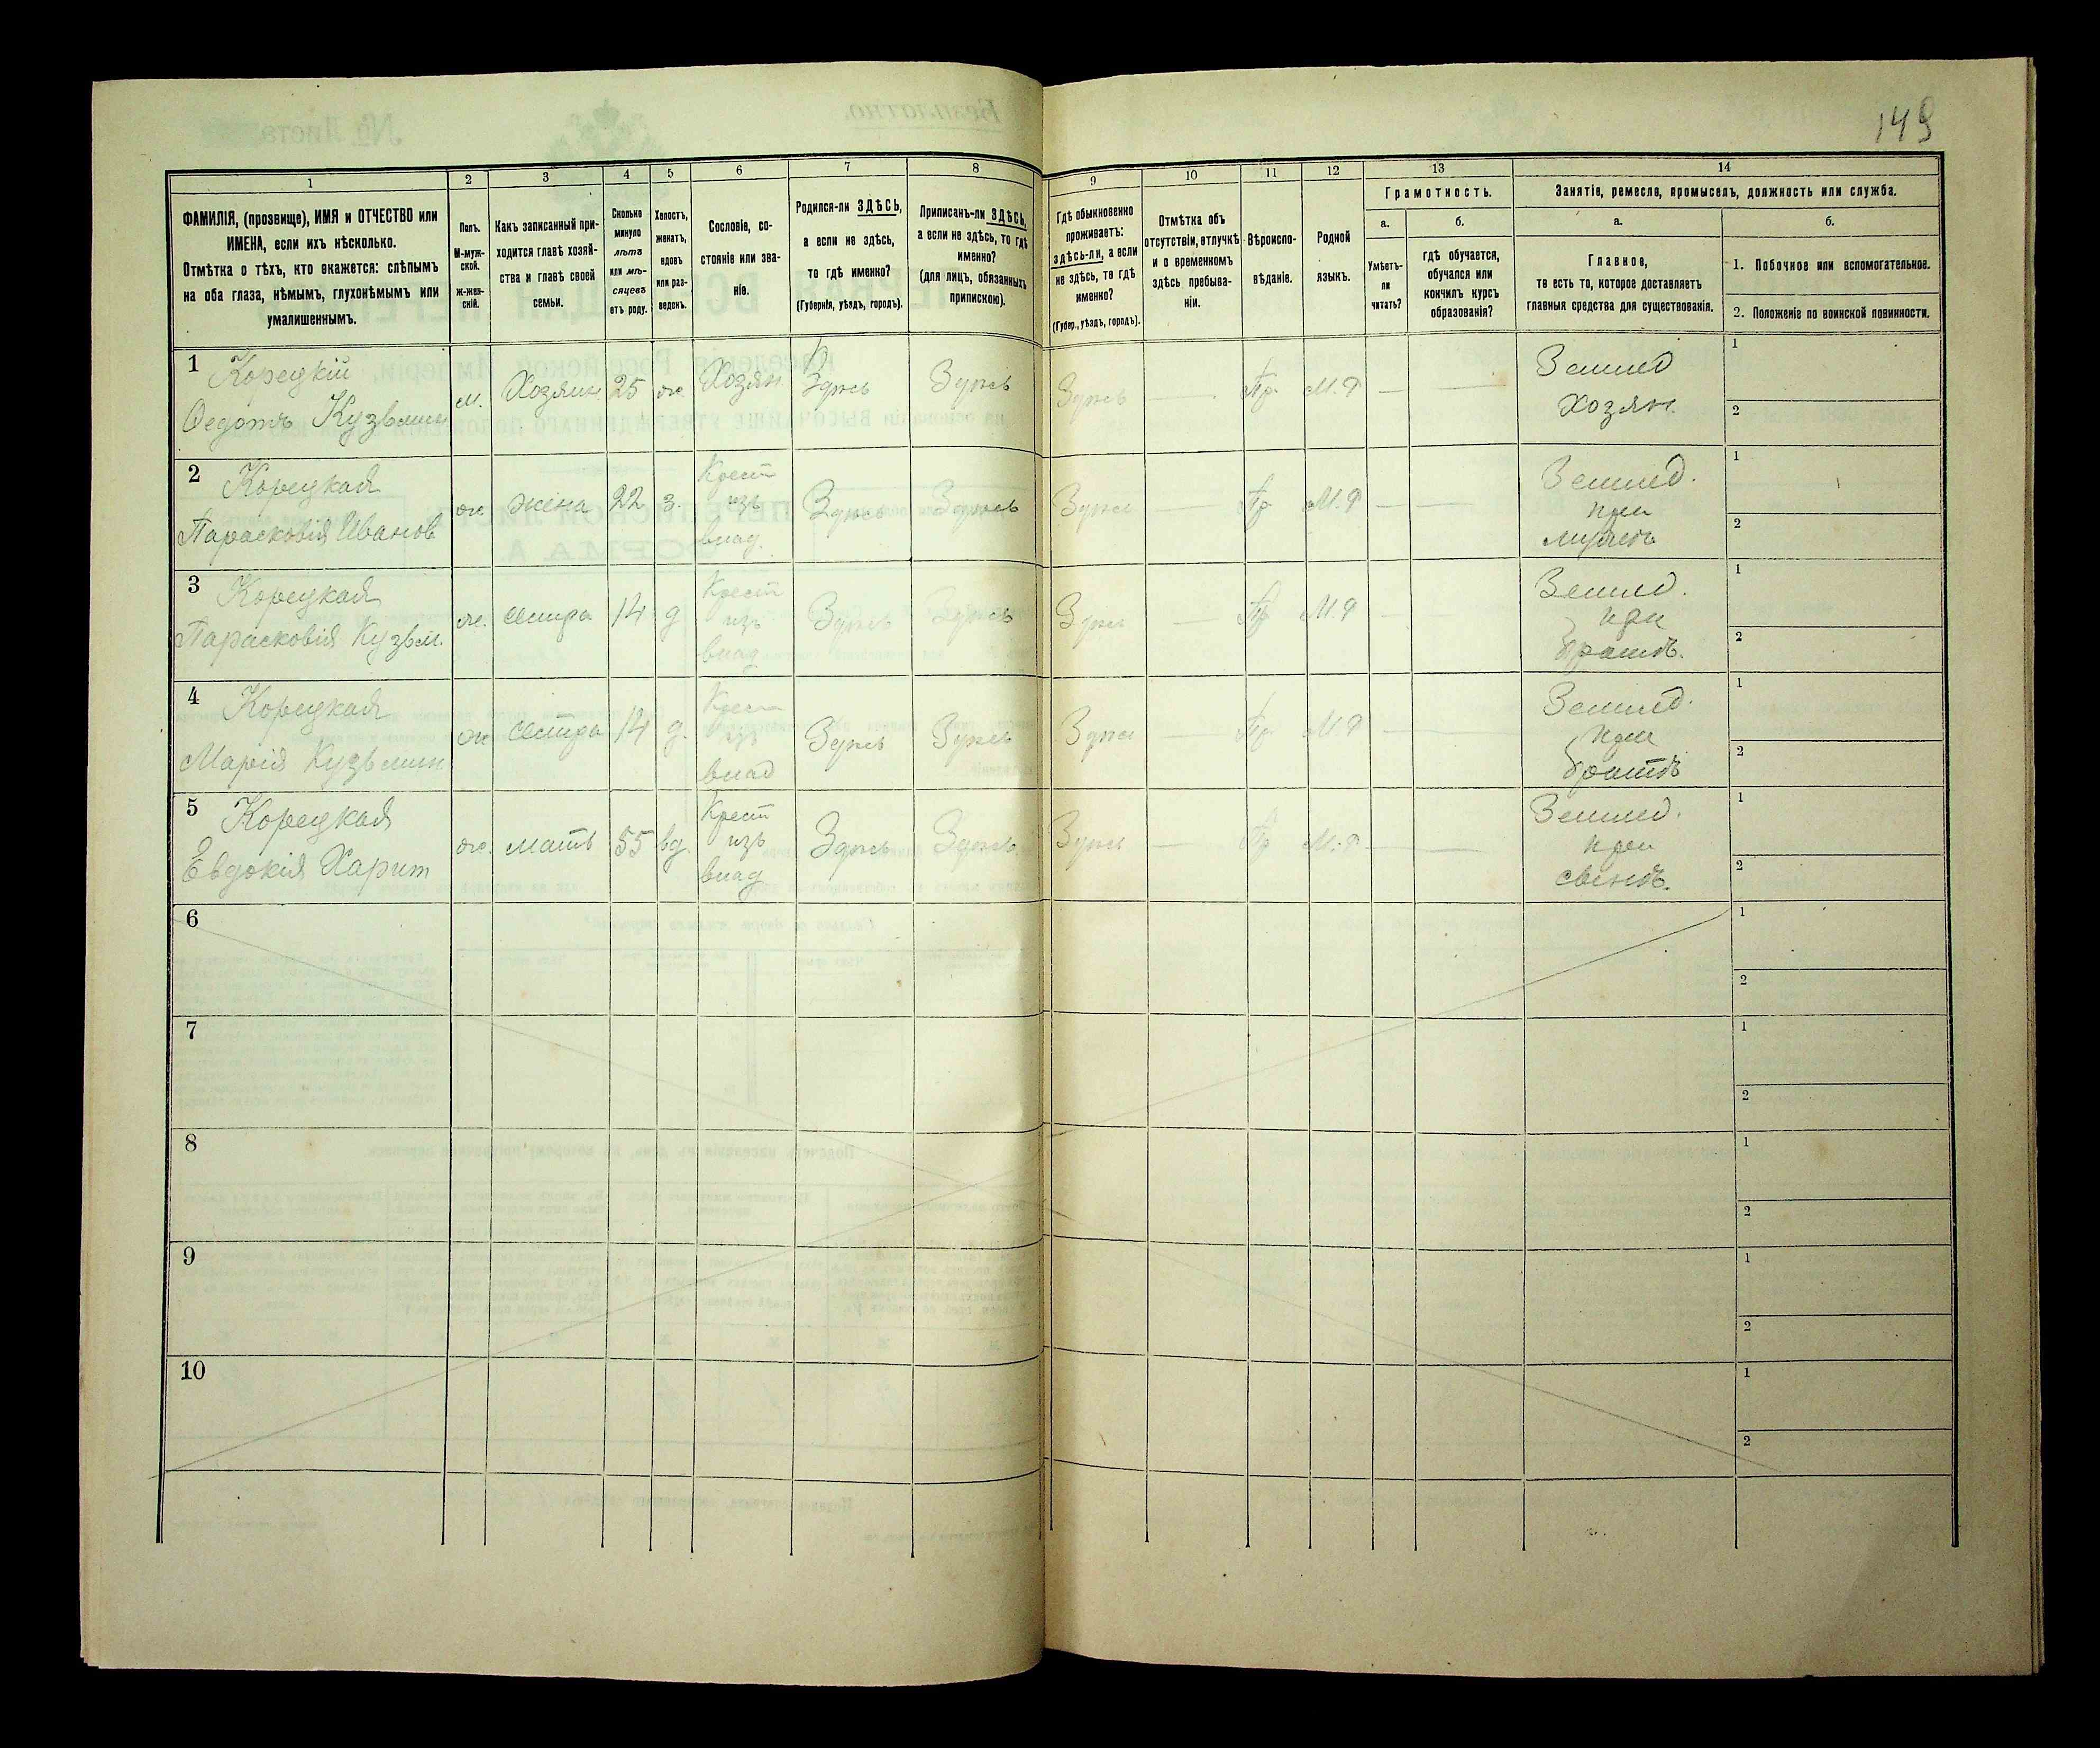 149
1
2
3
4
5
6
7
8
9
10
11
12
13
14
ФАМИЛІЯ, (прозвище), ИМЯ и ОТЧЕСТВО или
ИМЕНА, если ихъ нѣсколько.
Отмѣтка о тѣхъ, кто окажется: слѣпымъ
на оба глаза, нѣмымъ, глухонѣмымъ или
умалишеннымъ.
Полъ.
М-муж-
ской.
ж-жен-
скій.
Какъ записанный при-
ходится главѣ хозяй-
ства и главѣ своей
семьи.
Сколько
минуло
лѣтъ
или мѣ-
сяцевъ
отъ роду.
Холостъ,
женатъ,
вдовъ
или раз-
веденъ.
Сословіе, со-
стояніе или зва-
ніе.
Родился-ли ЗДѢСЬ,
а если не здѣсь,
то гдѣ именно?
(Губернія, уѣздъ, городъ).
Приписанъ-ли ЗДѢСЬ,
а если не здѣсь, то гдѣ
именно?
(для лицъ, обязанныхъ
припискою).
Гдѣ обыкновенно
проживаетъ:
здѣсь-ли, а если
не здѣсь, то гдѣ
именно?
(Губер., уѣздъ, городъ).
Отмѣтка объ
отсутствіи, отлучкѣ
и о временномъ
здѣсь пребыва-
ніи.
Вѣроиспо-
вѣданіе.
Родной
языкъ.
Грамотность.
а.
б.
Умѣетъ-
ли
читать?
гдѣ обучается,
обучался или
кончилъ курсъ
образованія?
Занятіе, ремесло, промыселъ, должность или служба.
а.
б.
Главное,
то есть то, которое доставляетъ
главныя средства для существованія.
1. Побочное или вспомогательное.
2. Положеніе по воинской повинности.
1 Корецкій
Федотъ Кузьмин
м. Хозяин 25 ж. Хозян Здѣсь Здѣсь Здѣсь — Пр. М.Р — —
Землед
Хозян.
1
2
2 Корецкая
Парасковія Иванов
ж жена 22 з. Крест изъ влад. Здѣсь Здѣсь Здѣсь — Пр М.Р — —
Землед.
при
мужѣ
1
2
3 Корецкая
Парасковія Кузьм.
ж. сестра 14 д Крест изъ влад Здѣсь Здѣсь Здѣсь — Пр М.Р —
Землед.
при
братѣ.
1
2
4 Корецкая
Марія Кузьмин
ж сестра 14 д. Крест изъ влад Здѣсь Здѣсь Здѣсь — Пр М.Р — —
Землед.
при
братѣ
1
2
5 Корецкая
Евдокія Харит
ж. мать 55 вд Крест изъ влад Здѣсь Здѣсь Здѣсь — Пр М.Р — —
Землед.
при
сынѣ.
1
2
6
1
2
7
1
2
8
1
2
9
1
2
10
1
2